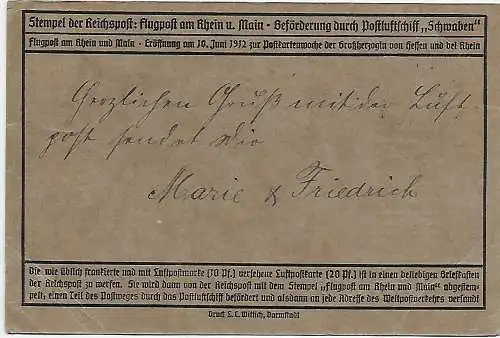 Stempel der Reichspost: Flugpost am Rhein u. Main - Beförderung durch Postluftschiff „Schwaben“
Flugpost am Rhein und Main - Eröffnung am 10. Juni 1912 zur Postkartenwoche der Großherzogin von Hessen und bei Rhein
Herzlichen Gruß mit der Luft-
post sendet Dir
Marie & Friedrich
Die wie üblich frankierte und mit Luftpostmarke (10 Pf.) versehene Luftpostkarte (20 Pf.) ist in einen beliebigen Briefkasten
der Reichspost zu werfen. Sie wird dann von der Reichspost mit dem Stempel „Flugpost am Rhein und Main“ abgestem-
pelt, einen Teil des Postweges durch das Postluftschiff befördert und alsdann an jede Adresse des Weltpostverkehrs versandt
Druck L. C. Wittich, Darmstadt